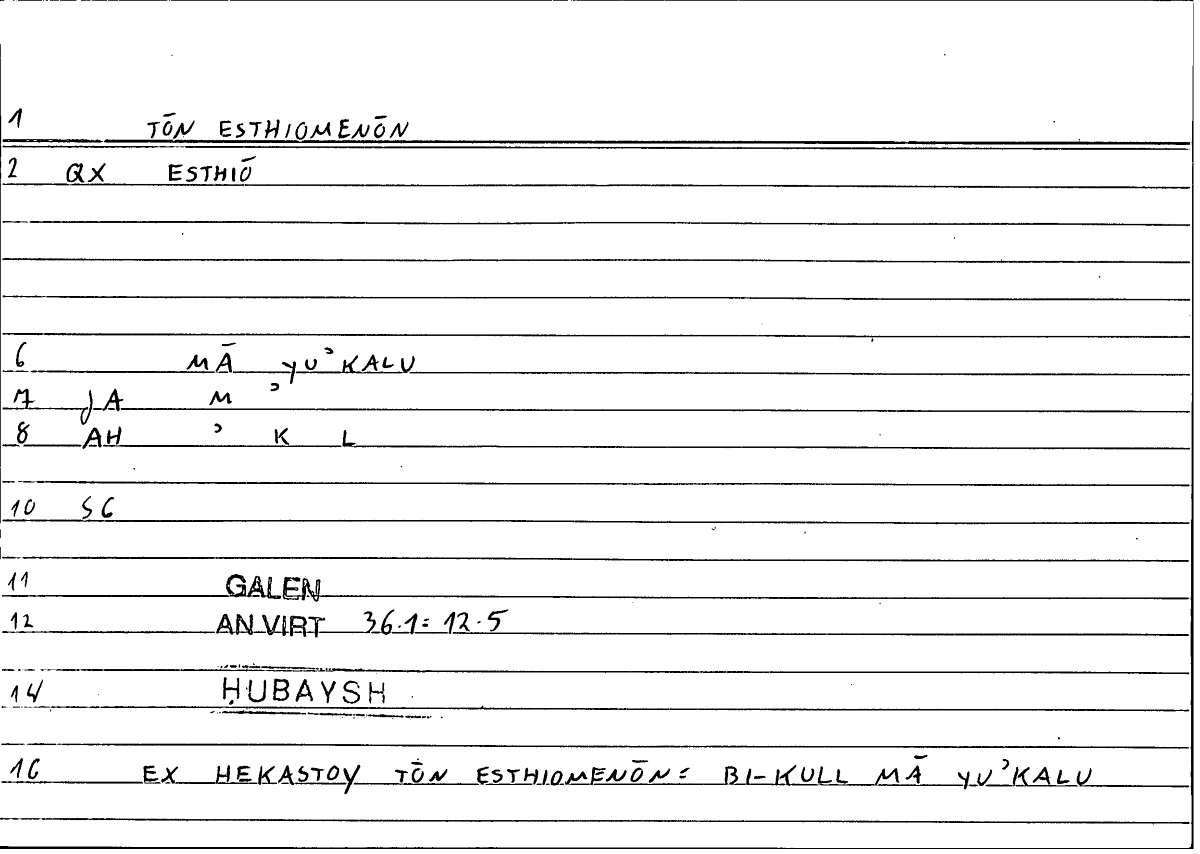 1 TŌN ESTHIOMENŌN
2 QX ESTHIŌ
6 MĀ YUʾKALU
7 JA M ʾ
8 AH ʾ K L
10 SG
11 GALEN
12 AN VIRT 36.1 = 12.5
14 ḤUBAYSH
16 EX HEKASTOY TŌN ESTHIOMENŌN = BI-KULL MĀ YUʾKALU